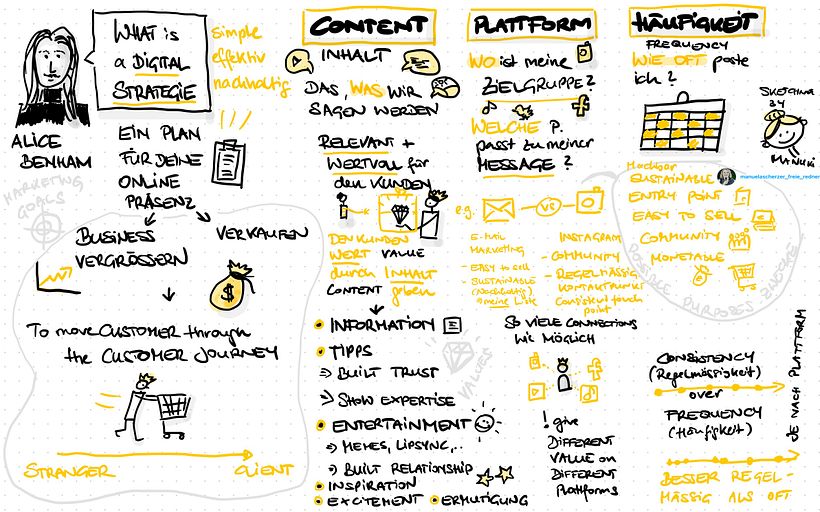 WHAT is
a DIGITAL
STRATEGIE
simple
effektiv
nachhaltig
ALICE
BENHAM
EIN PLAN
FÜR DEINE
ONLINE
PRÄSENZ
MARKETING
GOALS
BUSINESS
VERGRÖSSERN
VERKAUFEN
$
To move CUSTOMER through
the CUSTOMER JOURNEY
STRANGER
CLIENT
CONTENT
INHALT
DAS, WAS WIR
SAGEN WERDEN
RELEVANT +
WERTVOLL für
den KUNDEN
DEN KUNDEN
WERT VALUE
durch INHALT
CONTENT geben
INFORMATION
TIPPS
BUILT TRUST
SHOW EXPERTISE
ENTERTAINMENT
MEMES, LIPSYNC,..
BUILT RELATIONSHIP
INSPIRATION
EXCITEMENT
ERMUTIGUNG
VALUES
PLATTFORM
WO ist meine
ZIELGRUPPE?
WELCHE P.
passt zu meiner
MESSAGE?
e.g.
VS
E-MAIL
MARKETING
- EASY to sell
- SUSTAINABLE
(Nachhaltig)
meine Liste
INSTAGRAM
- COMMUNITY
- REGELMÄSSIG
KONTAKTPUNKT
Consistent touch
point
SO VIELE CONNECTIONS
WIE MÖGLICH
! give
DIFFERENT
VALUE on
DIFFERENT
Plattforms
HÄUFIGKEIT
FREQUENCY
WIE OFT poste
ich?
SKETCHNOTE
BY
MANUKI
Machbar
SUSTAINABLE
manuelascherzer_freie_redner
ENTRY POINT
EASY TO SELL
COMMUNITY
MONETABLE
POSSIBLE PURPOSES
CONSISTENCY
(Regelmässigkeit)
over
FREQUENCY
(Häufigkeit)
JE NACH PLATTFORM
BESSER REGEL-
MÄSSIG ALS OFT